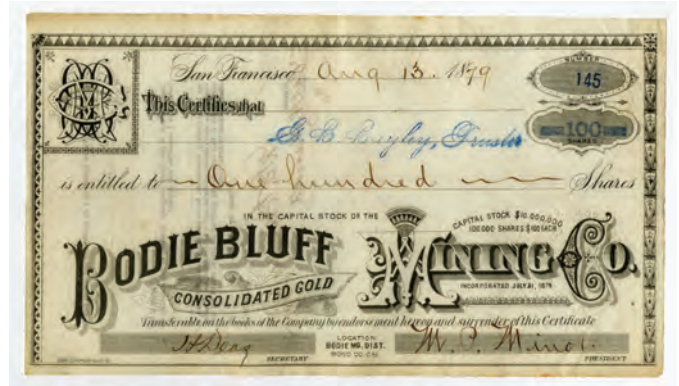 San Francisco, Aug 13. 1879
NUMBER
145
This Certifies that
G. B. Bayley, Trustee
100
SHARES
is entitled to One hundred Shares
IN THE CAPITAL STOCK OF THE
CAPITAL STOCK $10.000.000
100.000 SHARES $100 EACH
BODIE BLUFF
CONSOLIDATED GOLD
MINING CO.
INCORPORATED JULY 31, 1878
Transferable on the books of the Company by endorsement hereon and surrender of this Certificate
SECRETARY
LOCATION
BODIE MG. DIST.
MONO CO. CAL
W. C. Minor.
PRESIDENT